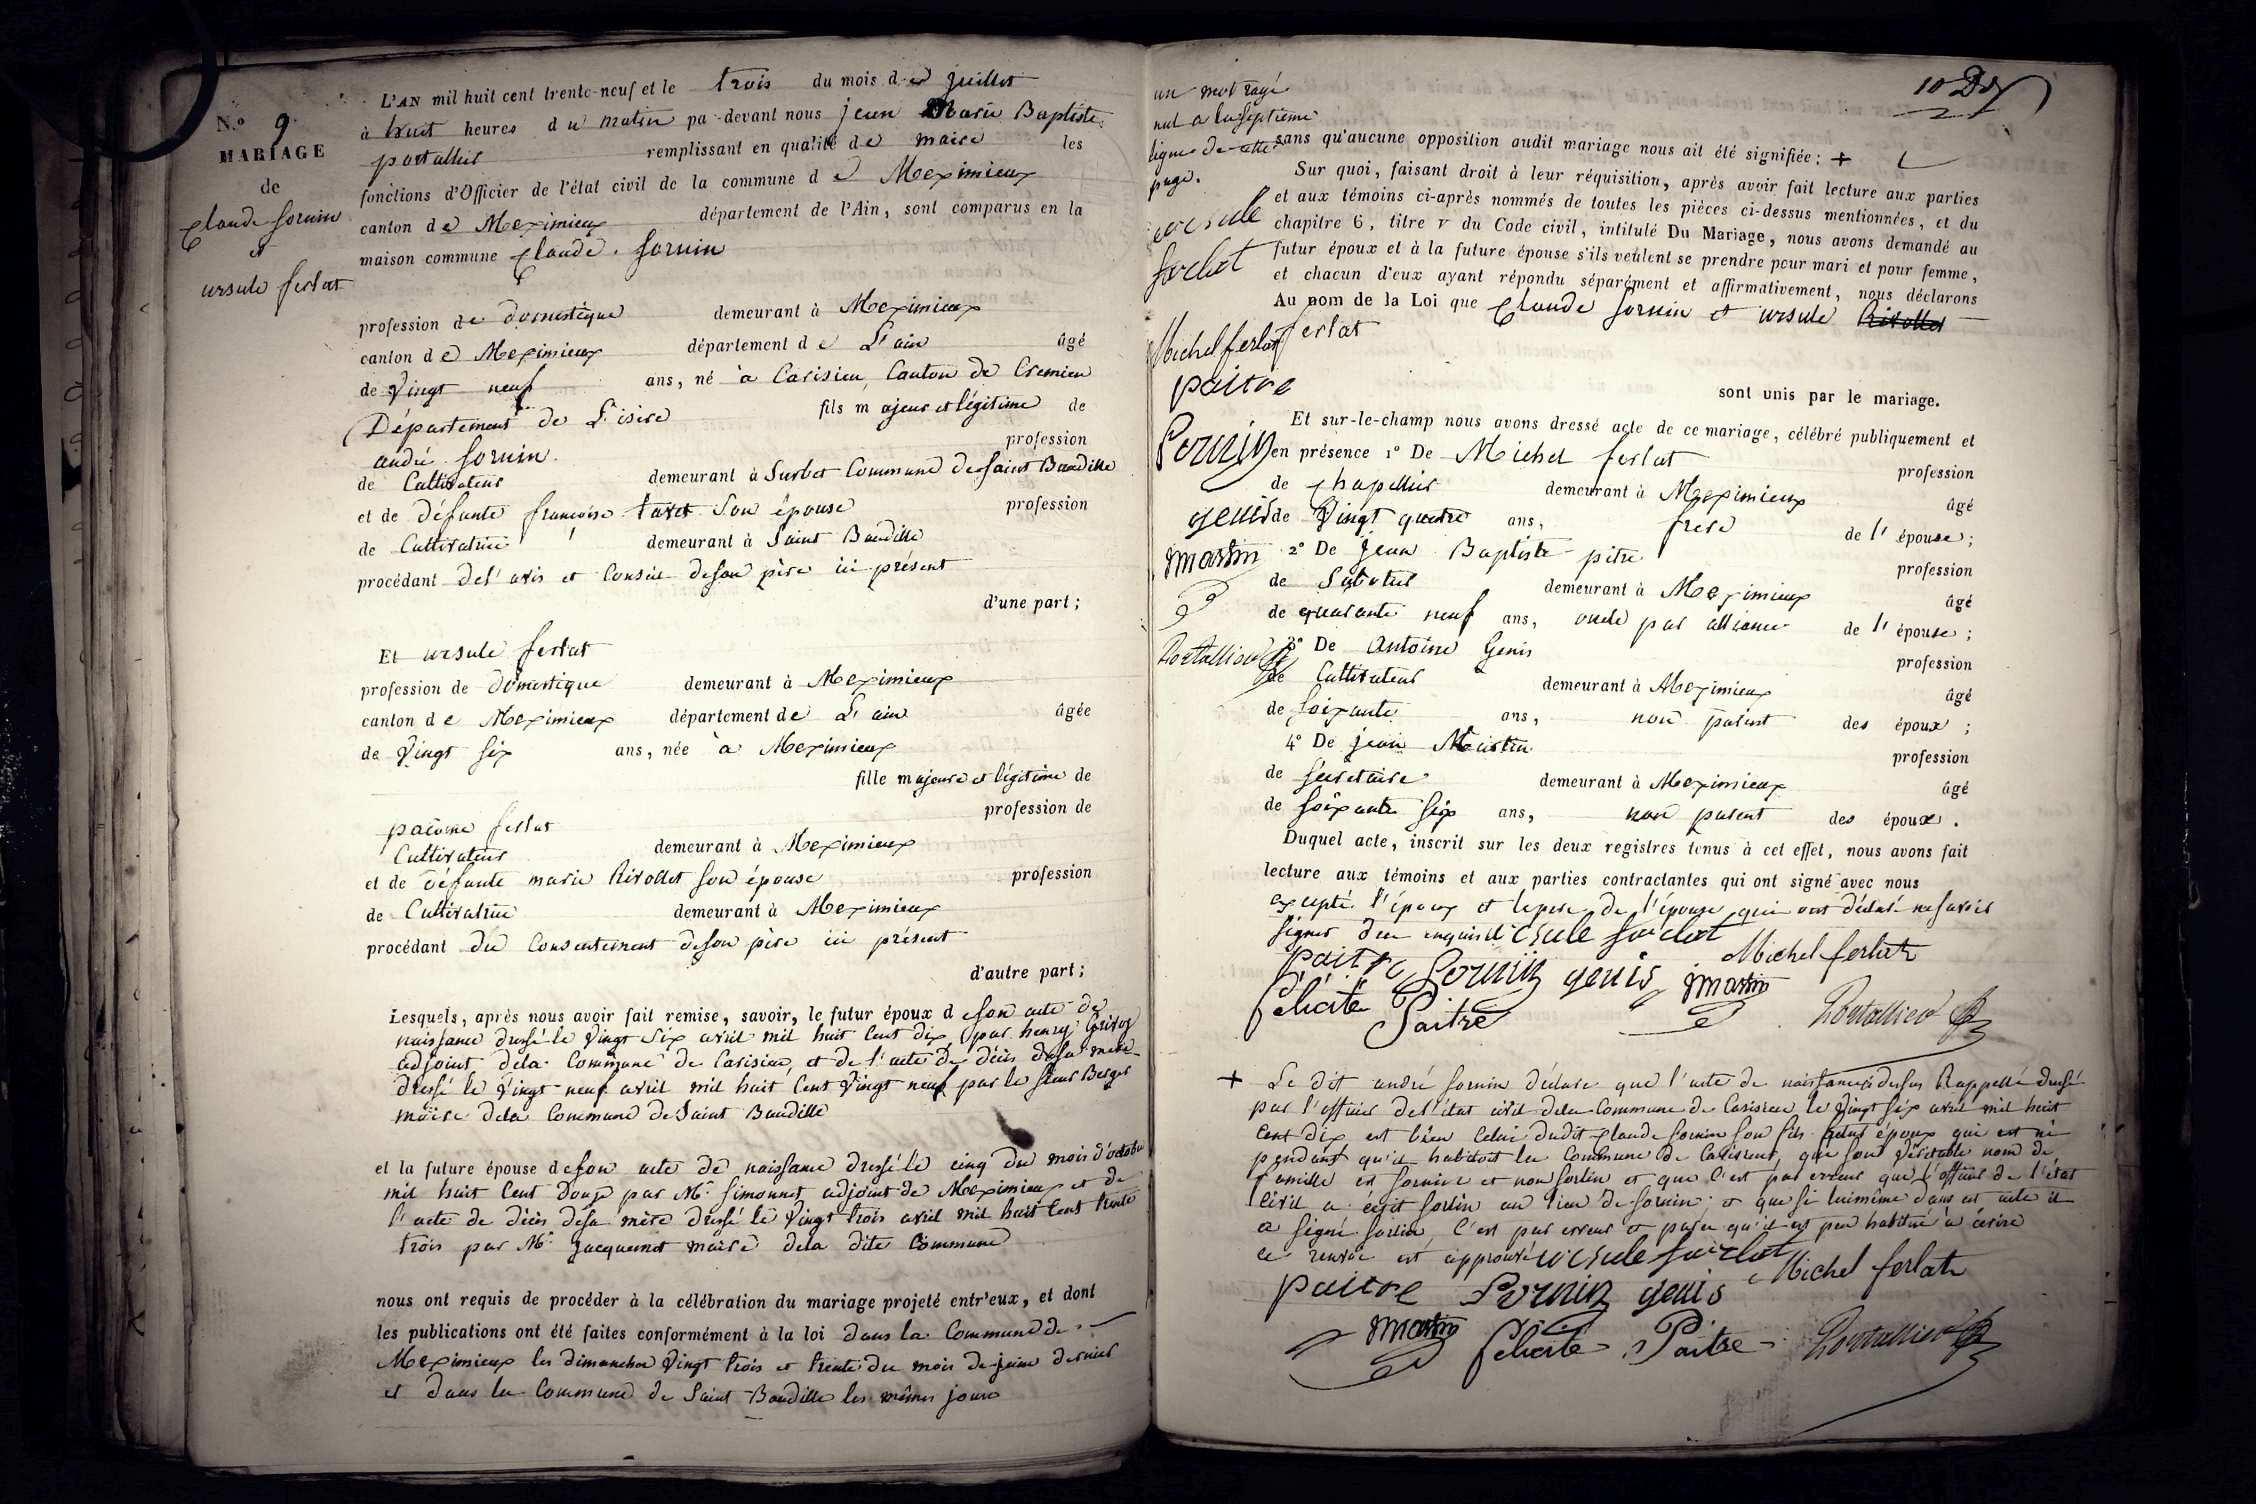 N.º 9.
MARIAGE
de
Claude Sornin
et
ursule ferlat
L'AN mil huit cent trente-neuf et le trois du mois de juillet
à huit heures du matin pa-devant nous jean Marie Baptiste
portallier remplissant en qualité de maire les
fonctions d'Officier de l'état civil de la commune de Meximieux
canton de Meximieux département de l'Ain, sont comparus en la
maison commune Claude Sornin
profession de domestique demeurant à Meximieux
canton de Meximieux département de L'ain âgé
de Vingt neuf ans, né à Carisieu, Canton de Cremieu
Département de L'isère fils majeur et légitime de
andré Sornin profession
de Cultivateur demeurant à Surbet Commune de Saint Baudille
et de défunte françoise tavet Son épouse profession
de Cultivatrice demeurant à Saint Baudille
procédant de l'avis et Conseil de son père ici présent
d'une part ;
Et ursule ferlat
profession de domestique demeurant à Meximieux
canton de Meximieux département de L'ain âgée
de Vingt six ans, née à Meximieux
fille majeure et légitime de
pacome ferlat profession de
Cultivateur demeurant à Meximieux
et de défunte marie Rivollet son épouse profession
de Cultivatrice demeurant à Meximieux
procédant du Consentement de son père ici présent
d'autre part ;
Lesquels, après nous avoir fait remise, savoir, le futur époux de son acte de
naissance dressé le Vingt six avril mil huit Cent dix, par henry
adjoint de la Commune de Carisieu, et de l'acte de décès de sa mère
dressé le Vingt neuf avril mil huit Cent Vingt neuf par le sieur Berger
maire de la Commune de Saint Baudille
et la future épouse de son acte de naissance dressé le cinq du mois d'octobre
mil huit Cent douze par Mr. Simonnet adjoint de Meximieux et de
l'acte de décès de sa mère dressé le Vingt trois avril mil huit Cent trente
trois par Mr. Jacquemet maire de la dite Commune
nous ont requis de procéder à la célébration du mariage projeté entr'eux, et dont
les publications ont été faites conformément à la loi dans la Commune de
Meximieux les dimanches Vingt trois et trente du mois de juin dernier
et dans la Commune de Saint Baudille les mêmes jours
un mot rayé
nul a la septième
ligne de cette
page.
ursule
forlat
Michel ferlat
paitre
Sornin
genis
martin
Portallier
sans qu'aucune opposition audit mariage nous ait été signifiée ; +
Sur quoi, faisant droit à leur réquisition, après avoir fait lecture aux parties
et aux témoins ci-après nommés de toutes les pièces ci-dessus mentionnées, et du
chapitre 6, titre V du Code civil, intitulé Du Mariage, nous avons demandé au
futur époux et à la future épouse s'ils veulent se prendre pour mari et pour femme,
et chacun d'eux ayant répondu séparément et affirmativement, nous déclarons
Au nom de la Loi que Claude Sornin et ursule Rivollet
ferlat
sont unis par le mariage.
Et sur-le-champ nous avons dressé acte de ce mariage, célébré publiquement et
en présence 1º De Michel ferlat profession
de Chapellier demeurant à Meximieux âgé
de Vingt quatre ans, frere de l'épouse ;
2º De jean Baptiste pitre profession
de Sabotier demeurant à Meximieux âgé
de quarante neuf ans, oncle par alliance de l'épouse ;
3º De Antoine Genis profession
de Cultivateur demeurant à Meximieux âgé
de Soixante ans, non parent des époux ;
4º De jean Martin profession
de Sécretaire demeurant à Meximieux âgé
de Soixante Six ans, non parent des époux.
Duquel acte, inscrit sur les deux registres tenus à cet effet, nous avons fait
lecture aux témoins et aux parties contractantes qui ont signé avec nous
excepté l'époux et le pere de l'épouse qui ont déclaré ne savoir
signer de ce enquis ursule forlat
Michel ferlat
paitre Sornin genis martin
félicité Paitre Portallier
+ Le dit andré Sornin déclare que l'acte de naissance cidessus Rappellé dressé
par l'officier de l'état civil de la Commune de Carisieu le Vingt six avril mil huit
Cent dix est bien Celui dudit Claude Sornin son fils futur époux qui est né
pendant qu'il habitoit la Commune de Carisieu, que son Véritable nom de
famille est Sornin et non Sorlin et que C'est par erreur que l'officier de l'état
Civil a écrit Sorlin au lieu de Sornin ; et que si luimême dans cet acte il
a signé Sorlin, C'est par erreur et parce qu'il est peu habitué à écrire
ce renvoi est approuvé ursule forlat
Michel ferlat
paitre Sornin genis
martin félicité Paitre Portallier